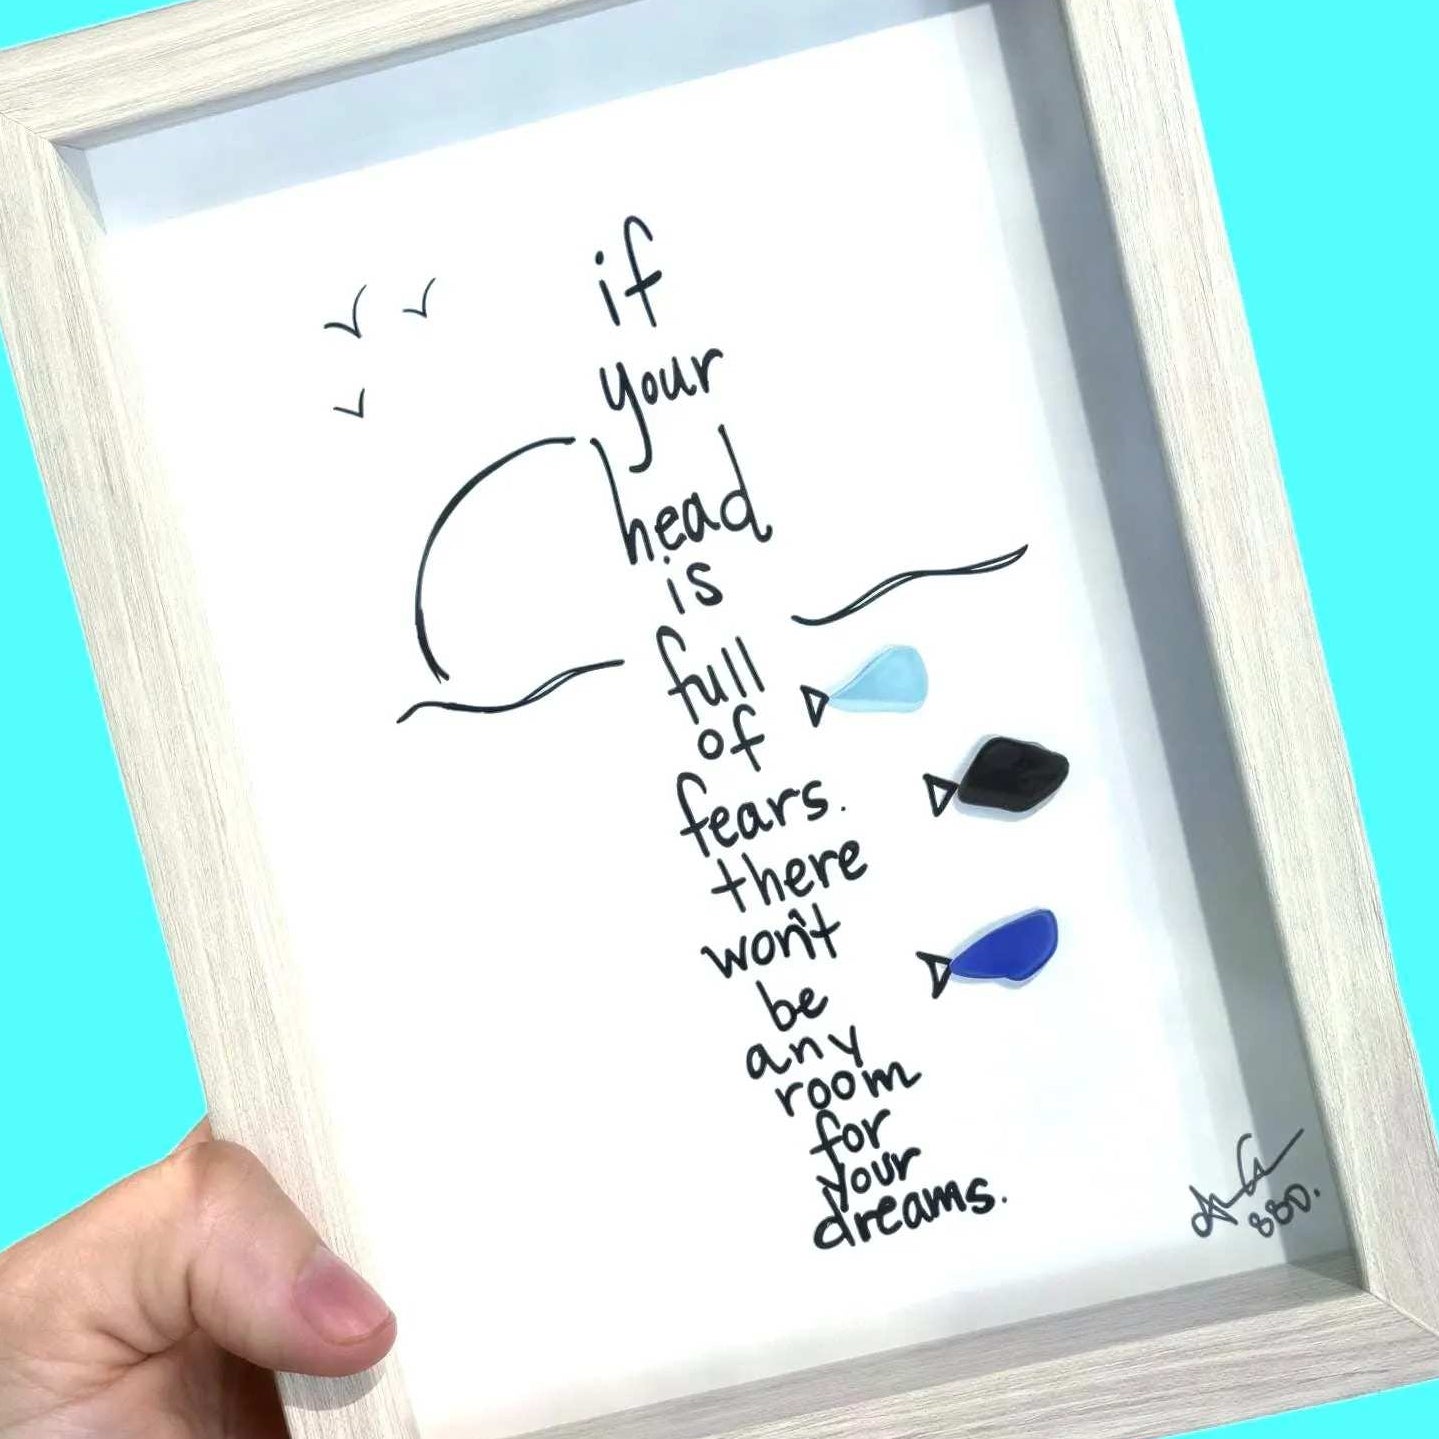 if
your
head
is
full
of
fears.
there
won't
be
any
room
for
your
dreams.
BBD.